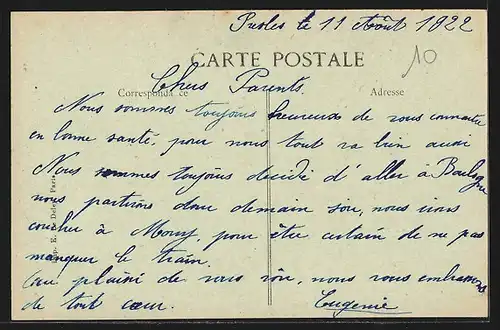 le 11 Août 1922
10
CARTE POSTALE
Correspondance
Adresse
Chers Parents.
Nous sommes toujours heureux de vous connaitre
en bonne santé, pour nous tout va bien aussi
Nous sommes toujours decidé d'aller à Boulogne
nous partirons donc demain soir, nous irons
coucher à pour être certain de ne pas
manquer le train.
Au plaisir de vous voir, nous vous embrassons
de tout cœur.
Eugenie